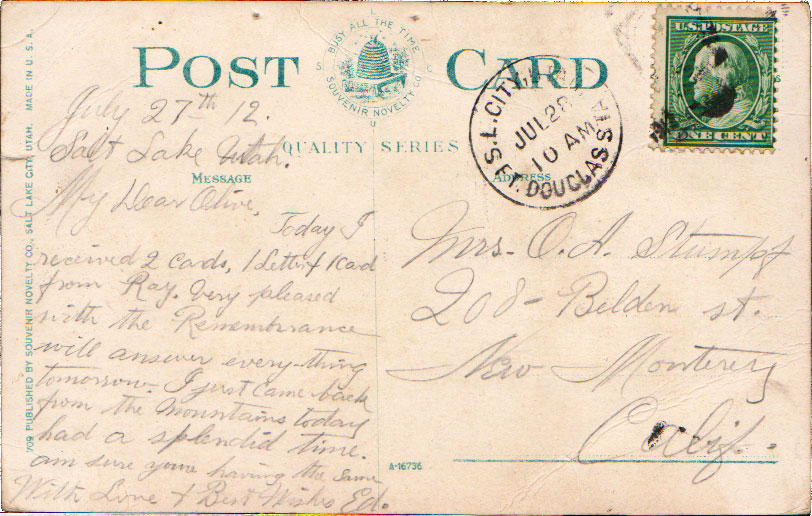 POST CARD
BUSY ALL THE TIME
SOUVENIR NOVELTY CO.
S U
QUALITY SERIES
MESSAGE
ADDRESS
709 PUBLISHED BY SOUVENIR NOVELTY CO., SALT LAKE CITY, UTAH. MADE IN U.S.A.
U.S. POSTAGE
ONE CENT
S.L. CITY,
JUL 28
10 AM
FT. DOUGLAS STA
July 27th 12.
Salt Lake Utah.
My Dear Olive,
Today I
received 2 cards, 1 Letter & 1 Card
from Ray. Very pleased
with the Remembrance
will answer every-thing
tomorrow. I just came back
from the mountains today
had a splendid time.
am sure you're having the same
With Love & Best Wishes Ed.
Mrs. O. A. Stumpf
208 - Belden st.
New Monterey
Calif.
A-16736